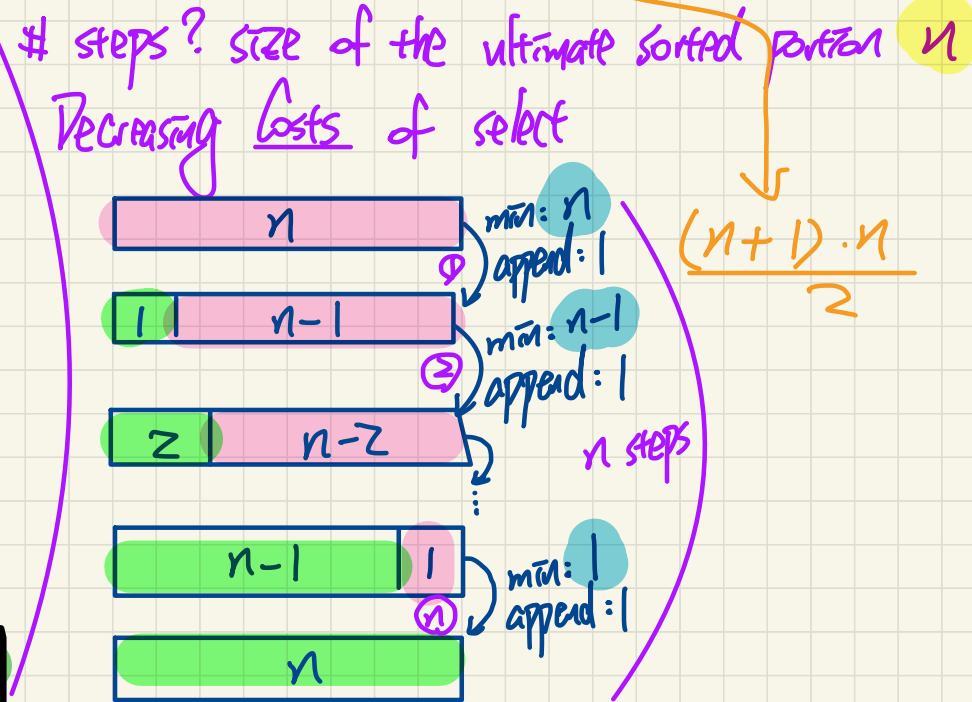 # steps? size of the ultimate sorted portion n
Decreasing Costs of select
n
min: n
append: 1
(n+1)·n
2
①
1 n-1
min: n-1
append: 1
②
2 n-2
n steps
...
n-1 1
min: 1
append: 1
ⓝ
n